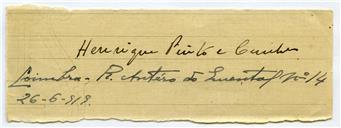 Henrique Pinto e Cunha
Coimbra - R. Antéro do Quental Nº 14
26-6-918.